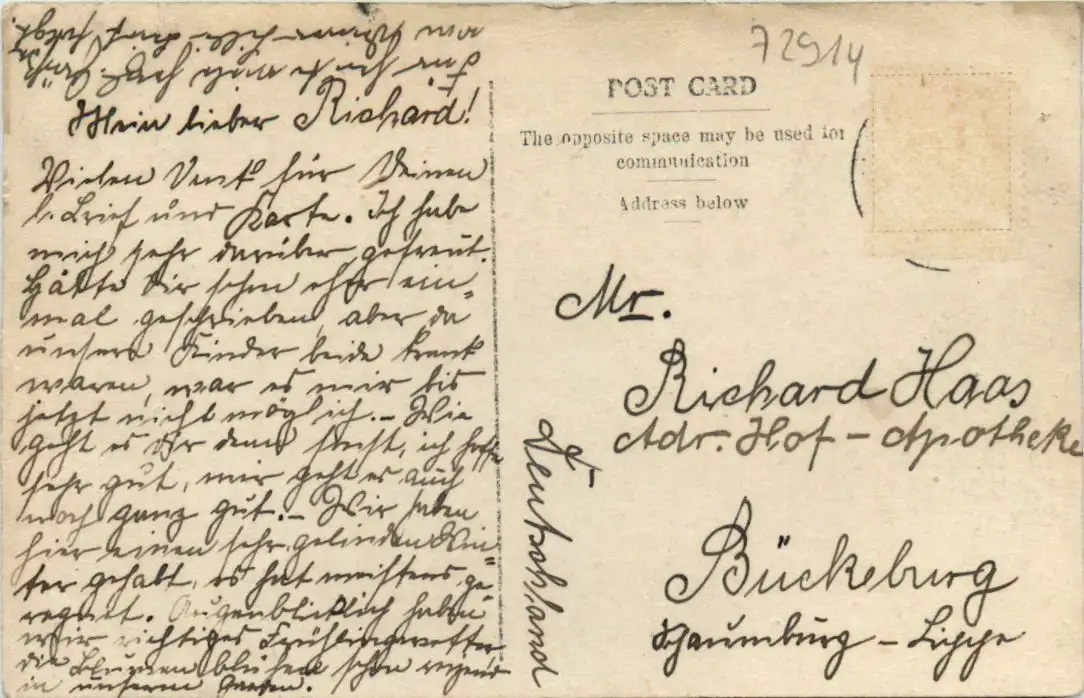 Mein lieber Richard!
Vielen Dank für Deinen
l. Brief und Karte. Ich habe
mich sehr darüber gefreut.
Hätte Dir schon eher ein-
mal geschrieben, aber da
unsere Kinder beide krank
waren, war es mir bis
jetzt nicht möglich. – Wie
geht es Dir denn sonst, ich hoffe
sehr gut, mir geht es auch
noch ganz gut. – Wir haben
hier einen sehr gelinden Win-
ter gehabt, es hat meistens ge-
regnet. Augenblicklich haben
wir richtiges Frühlingswetter
die Blumen blühen schon
in unserm Garten.
72914
POST CARD
The opposite space may be used for
communication
Address below
Mr.
Richard Haas
Adr. Hof - Apotheke
Bückeburg
Schaumburg - Lippe
Deutschland